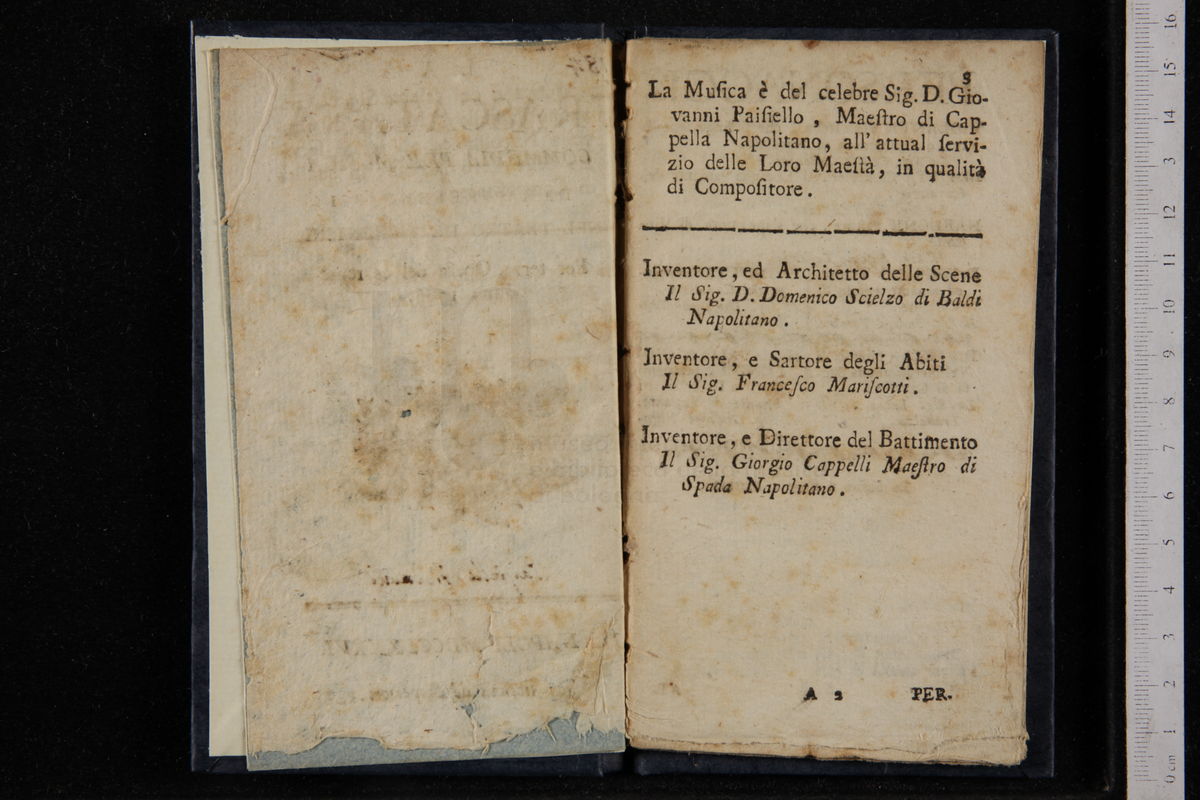 3
La Muſica è del celebre Sig. D. Gio-
vanni Paiſiello, Maeſtro di Cap-
pella Napolitano, all' attual ſervi-
zio delle Loro Maeſtà, in qualità
di Compoſitore.
Inventore, ed Architetto delle Scene
Il Sig. D. Domenico Scielzo di Baldi
Napolitano.
Inventore, e Sartore degli Abiti
Il Sig. Franceſco Mariſcotti.
Inventore, e Direttore del Battimento
Il Sig. Giorgio Cappelli Maeſtro di
Spada Napolitano.
A 2 PER.
0 cm 1 2 3 4 5 6 7 8 9 10 11 12 13 14 15 16